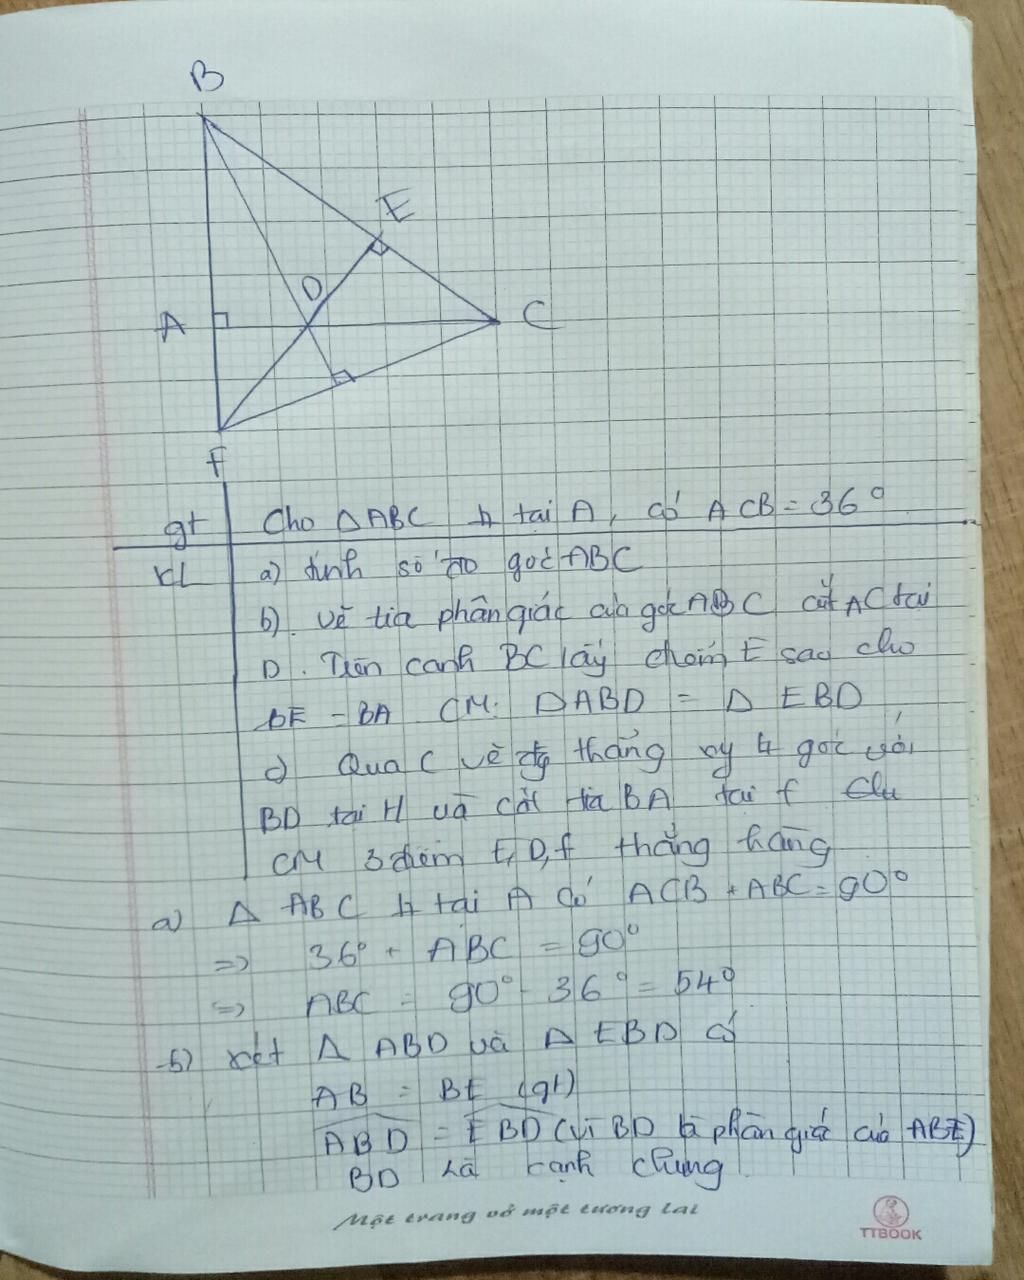 B
E
D
A
C
F
gt Cho ΔABC ⊥ tại A, có ACB = 36°
KL a) tính số đo góc ABC
b). vẽ tia phân giác của góc ABC cắt AC tại
D. Trên cạnh BC lấy E sao cho
BE = BA CM: ΔABD = Δ EBD
c) Qua C vẽ thẳng xy ⊥ góc với
BD tại H và cắt tia BA tại f
CM 3 điểm E, D, f thẳng hàng
a) Δ ABC ⊥ tại A Có ACB + ABC = 90°
=> 36° + ABC = 90°
=> ABC = 90° - 36° = 54°
b) xét Δ ABD và Δ EBD có
AB = BE (gt)
ABD = EBD (vì BD là phân giác của ABE)
BD là cạnh chung.
Một trang vở một tương lai
TTBOOK